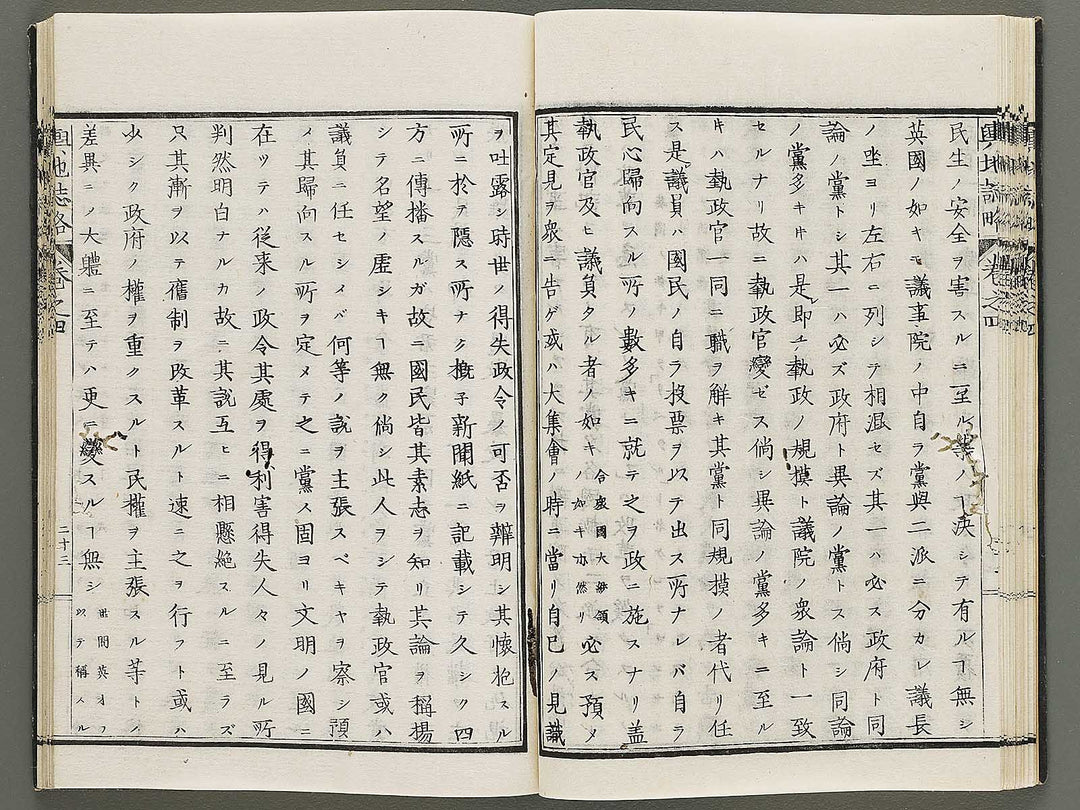 民生ノ安全ヲ害スルニ至ル等ノヿ決シテ有ルヿ無シ
英國ノ如キハ議事院ノ中自ラ黨與二派ニ分カレ議長
ノ坐ヨリ左右ニ列シテ相混セズ其一ハ必ス政府ト同
論ノ黨トシ其一ハ必ズ政府ト異論ノ黨トス倘シ同論
ノ黨多キ𪜈ハ是即チ執政ノ規模ト議院ノ衆論ト一致
セルナリ故ニ執政官變ゼス倘シ異論ノ黨多キニ至ル
𪜈ハ執政官一同ニ職ヲ解キ其黨ト同規摸ノ者代リ任
ス是レ議員ハ國民ノ自ラ投票ヲ以テ出ス所ナレバ自ラ
民心歸向スル所ノ數多キニ就テ之ヲ政ニ施スナリ盖
執政官及ヒ議負タル者ノ如キハ
合衆國大統領
如キ亦然リ
必ス預メ
其定見ヲ衆ニ告ゲ或ハ大集會ノ時ニ當リ自己ノ見識
ヲ吐露シ時世ノ得失政令ノ可否ヲ辨明シ其懷抱スル
所ニ於ヲ隠ス所ナク概子新聞紙ニ記載シテ久シク四
方ニ傳播スルガ故ニ國民皆其素志ヲ知リ其論ヲ稱揚
シテ名望ノ虚シキヿ無ク倘シ此人ヲシテ執政官或ハ
議負ニ任セシメバ何等ノ説ヲ主張スベキヤヲ察シ預
メ其歸向スル所ヲ定メテ之ニ黨ス固ヨリ文明ノ國ニ
在ツテハ従来ノ政令其處ヲ得利害得失人々ノ見ル所
判然明白ナルカ故ニ其説互ヒニ相懸絶スルニ至ラズ
只其漸ヲ以テ舊制ヲ改革スルト速ニ之ヲ行フト或ハ
少シク政府ノ權ヲ重クスルト民權ヲ主張スル等トノ
差異ニノ大軆ニ至テハ更ニ變スルヿ無シ
世間英才ヲ
以テ稱スル
輿地誌略
卷之四
二十三